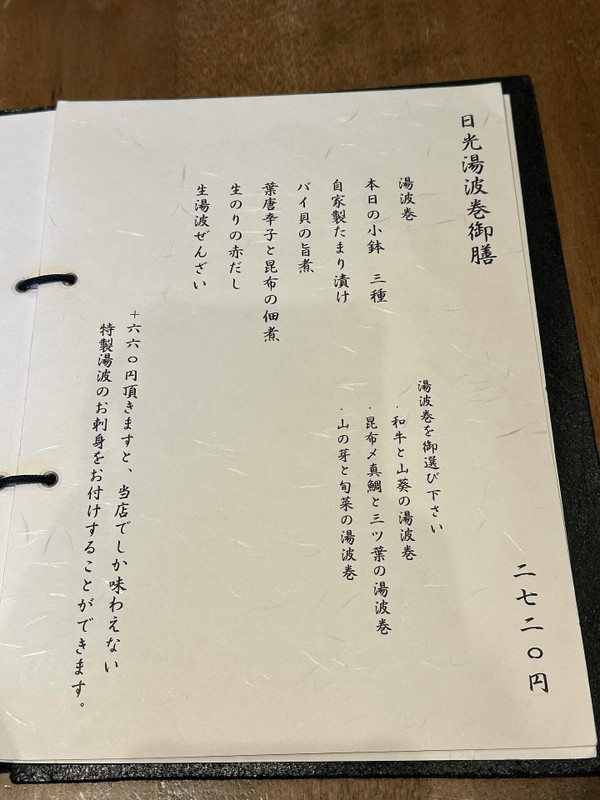 日光湯波巻御膳
二七二〇円
湯波巻
本日の小鉢 三種
自家製たまり漬け
バイ貝の旨煮
葉唐辛子と昆布の佃煮
生のりの赤だし
生湯波ぜんざい
湯波巻を御選び下さい
・和牛と山葵の湯波巻
・昆布〆真鯛と三ツ葉の湯波巻
・山の芽と旬菜の湯波巻
+六六〇円頂きますと、当店でしか味わえない
特製湯波のお刺身をお付けすることができます。